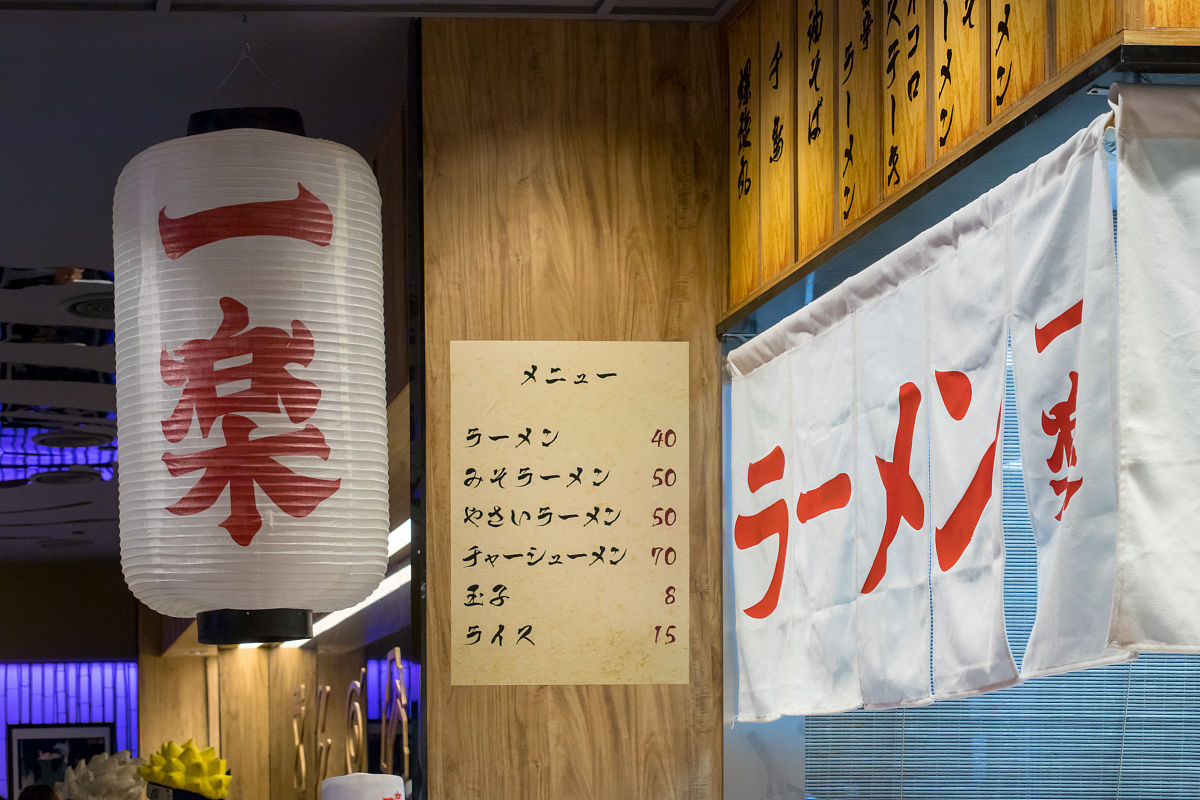 一楽
メニュー
ラーメン 40
みそラーメン 50
やさいラーメン 50
チャーシューメン 70
玉子 8
ライス 15
油そば
ラーメン
ラーメン
一楽